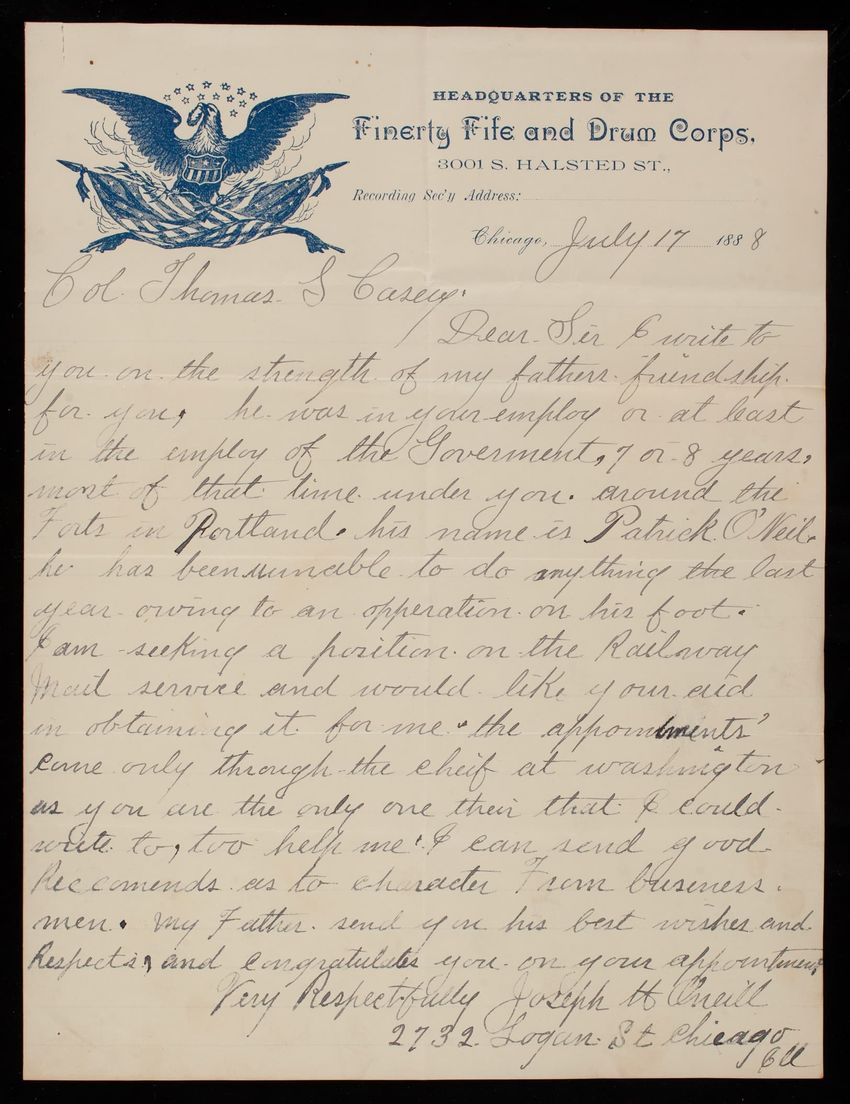 HEADQUARTERS OF THE
Finerty Fife and Drum Corps,
3001 S. HALSTED ST.,
Recording Sec'y Address:
Chicago, July 17 1888
Col. Thomas S Casey.
Dear Sir I write to
you on the strength of my fathers friendship
for you, he was in your employ or at least
in the employ of the Goverment, 7 or 8 years,
most of that time under you. around the
Forts in Portland. his name is Patrick O'Neil.
he has been unnable to do anything the last
year owing to an opperation on his foot.
I am seeking a position on the Railway
Mail service and would like your aid
in obtaining it for me. the appointments
come only through the cheif at washington
as you are the only one their that I could
write to, too help me. I can send good
Reccomends as to character From buseness
men. my Father send you his best wishes and
Respects, and congratulates you on your appointment
Very Respectfully Joseph H O'neill
2732 Logan St Chicago
Ill